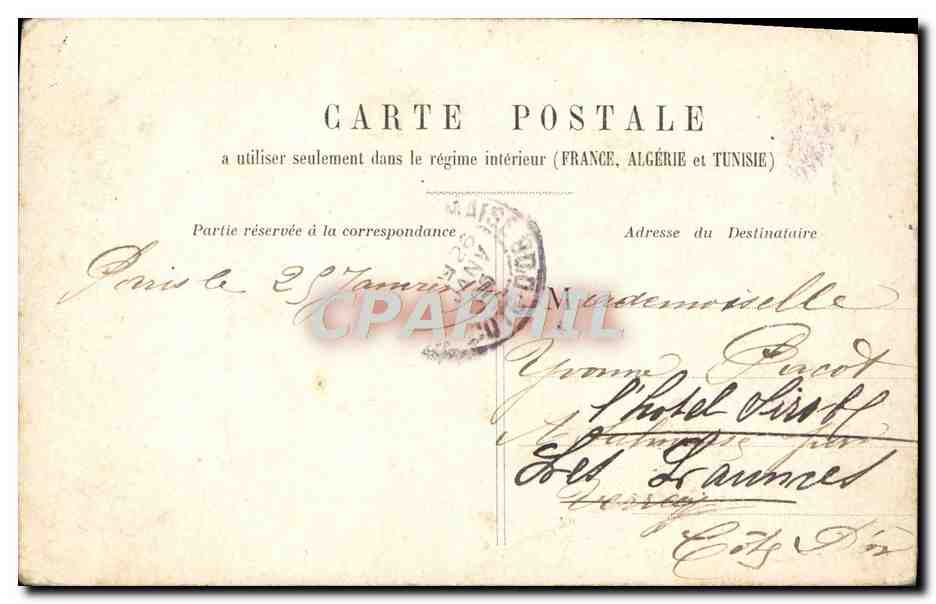 CARTE POSTALE
a utiliser seulement dans le régime intérieur (FRANCE, ALGÉRIE et TUNISIE)
Partie réservée à la correspondance
Adresse du Destinataire
Paris le 25 Janvier
Mademoiselle
Yvonne
l'hotel Sirot
Les Laumes
Côte D'or
CPAPHIL